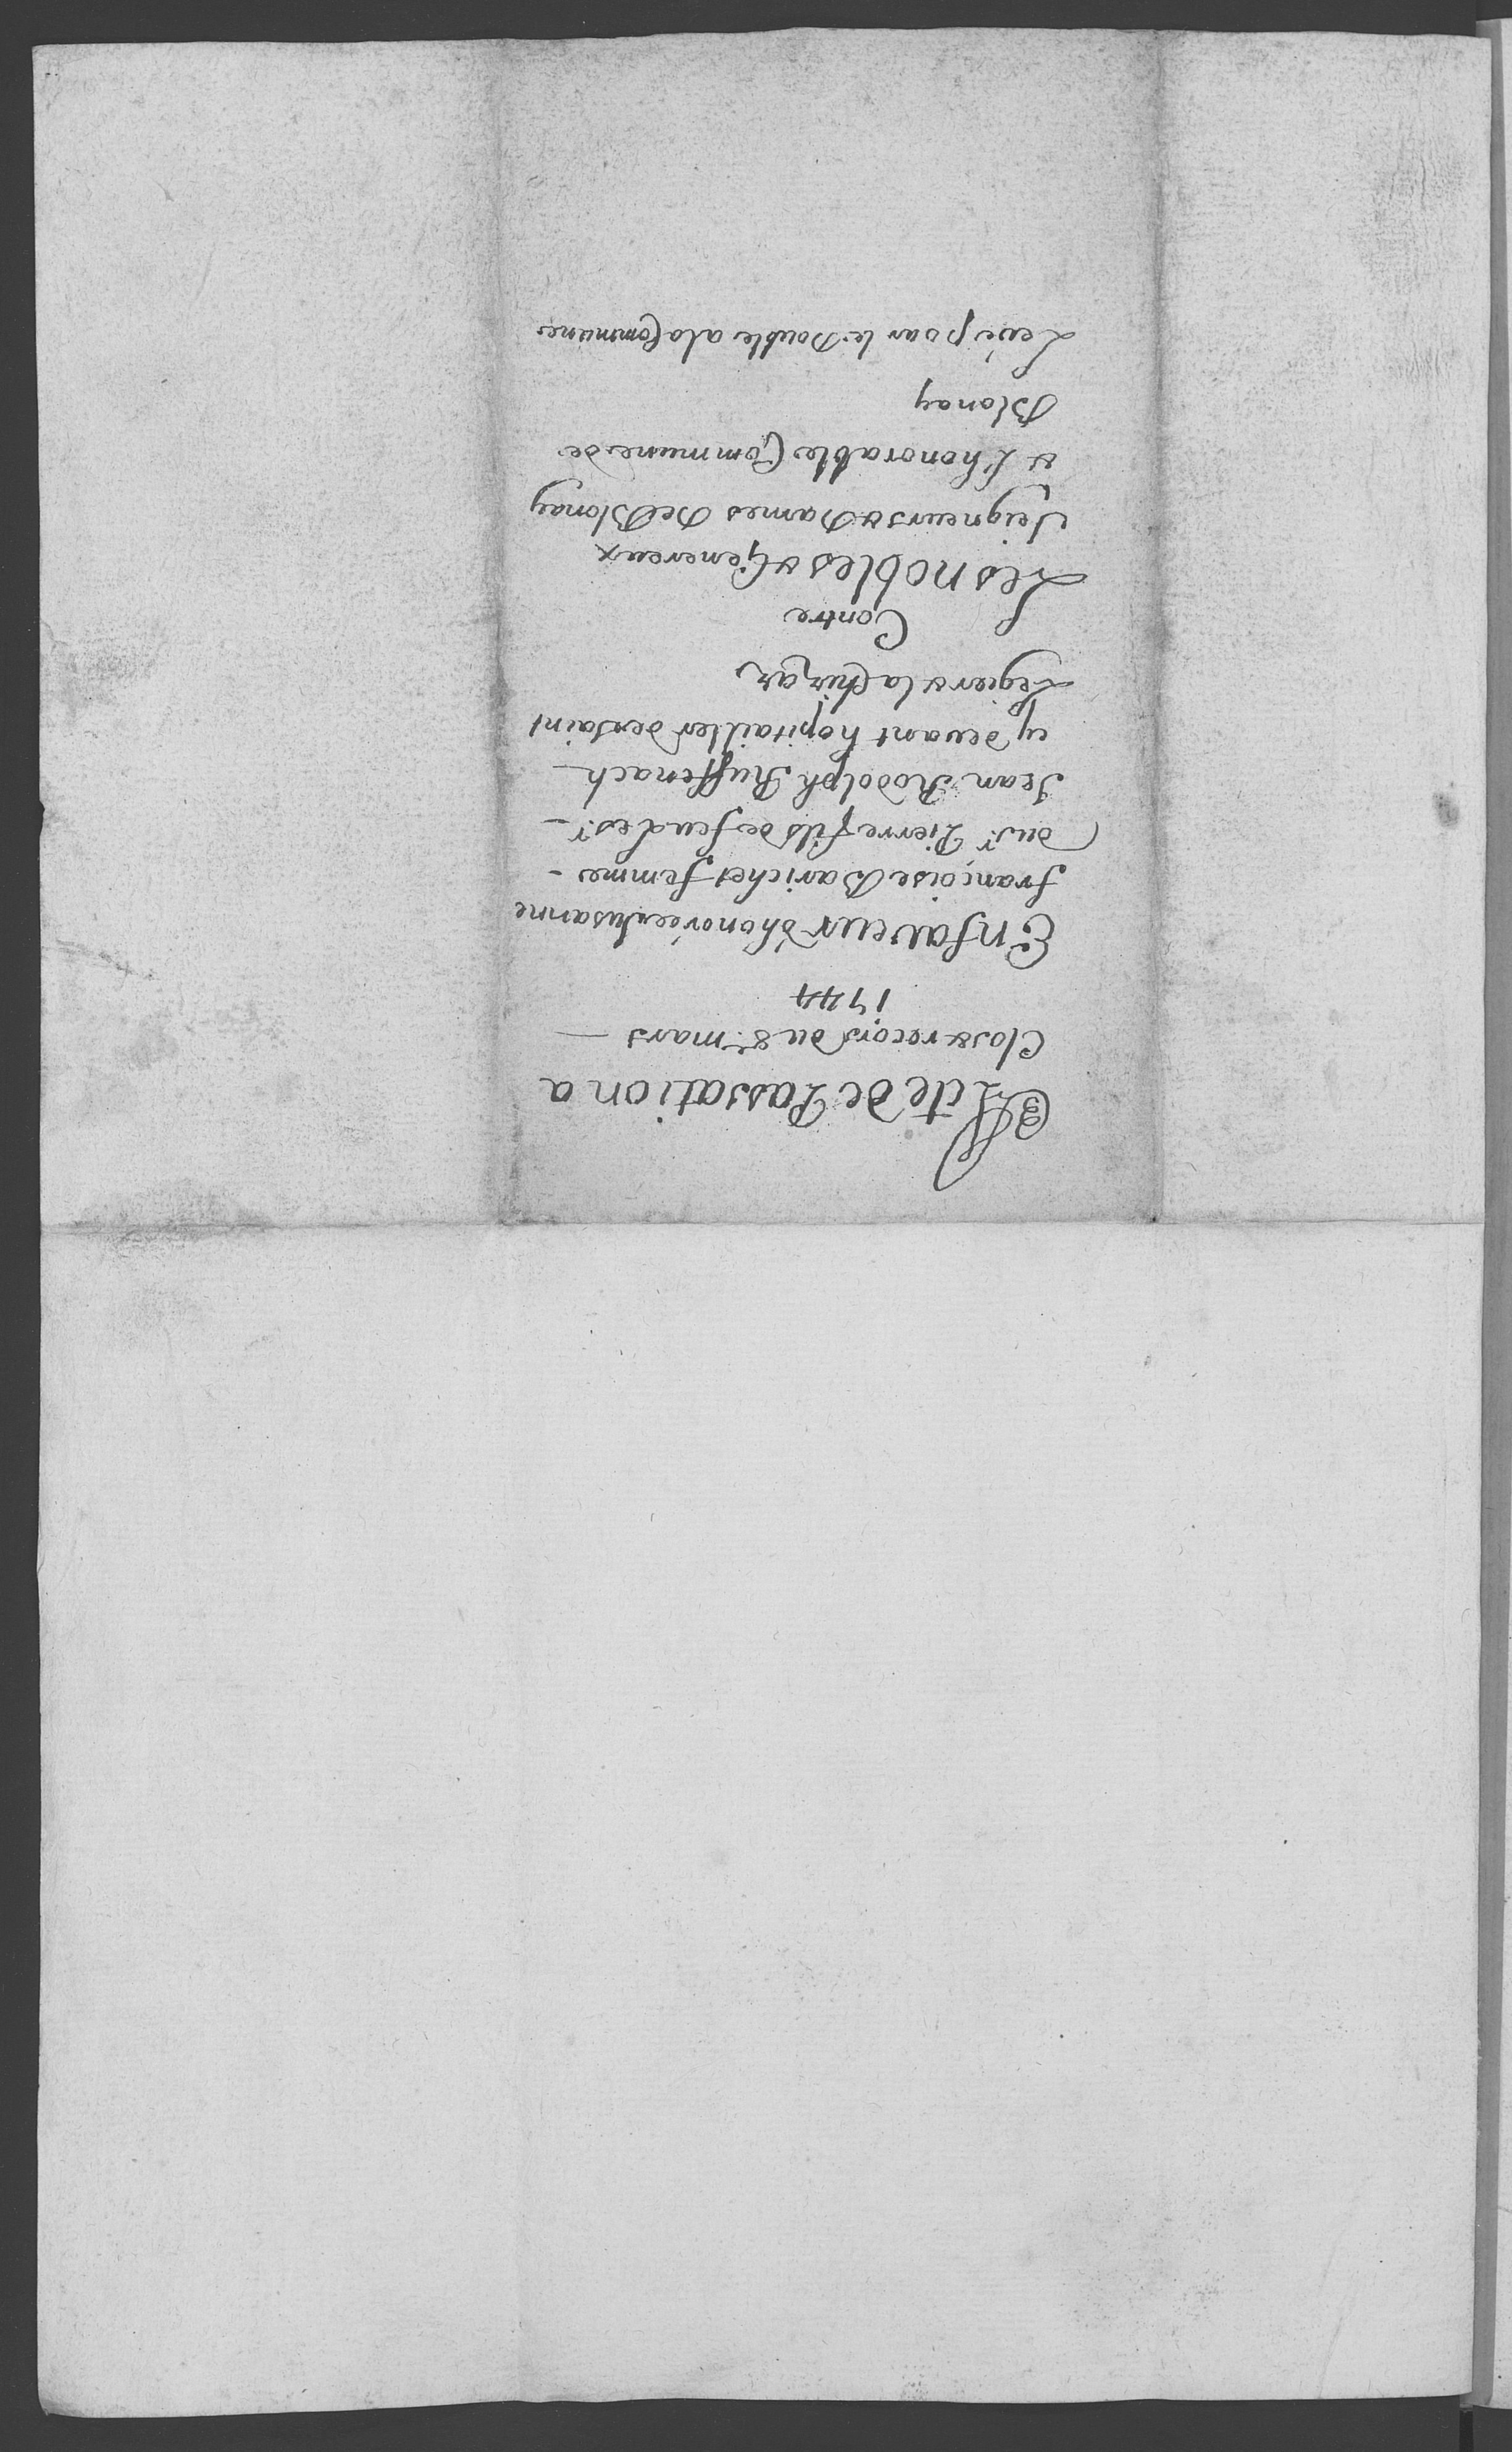 Acte de Passation a
Clos & records du 8e. mars —
1744
En faveur d'honorée Susanne
françoise Bariches femme -
du Sr. Pierre fils de feu le Sr. -
Jean Rodolph Ruffenach -
cy devant hopitailler de Saint
Legier & la Chiésaz
Contre
Les nobles & Genereux
Seigneurs & Dames De Blonay
& L'honorable Commune de
Blonay
Levé pour le Double a la Commune